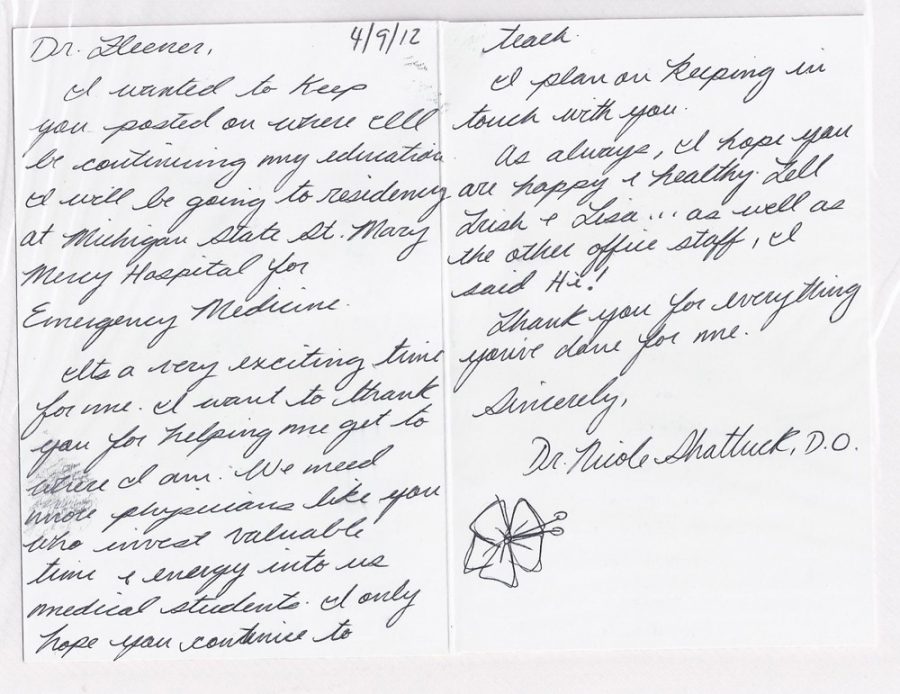 Dr. Fleener,
4/9/12
I wanted to keep
you posted on where I'll
be continuing my education
I will be going to residency
at Michigan State St. Mary
Mercy Hospital for
Emergency Medicine.
Its a very exciting time
for me. I want to thank
you for helping me get to
where I am. We need
more physicians like you
who invest valuable
time & energy into us
medical students. I only
hope you continue to
teach.
I plan on keeping in
touch with you.
As always, I hope you
are happy & healthy. Tell
Trish & Lisa... as well as
the other office staff, I
said Hi!
Thank you for everything
you've done for me.
Sincerely,
Dr. Nicole Shattuck, D.O.